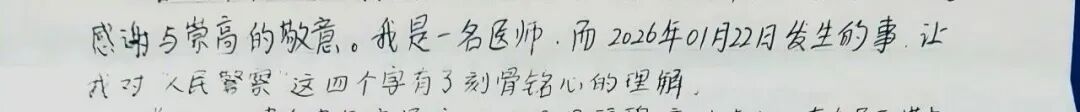 感谢与崇高的敬意。我是一名医师，而2026年01月22日发生的事，让
我对"人民警察"这四个字有了刻骨铭心的理解，